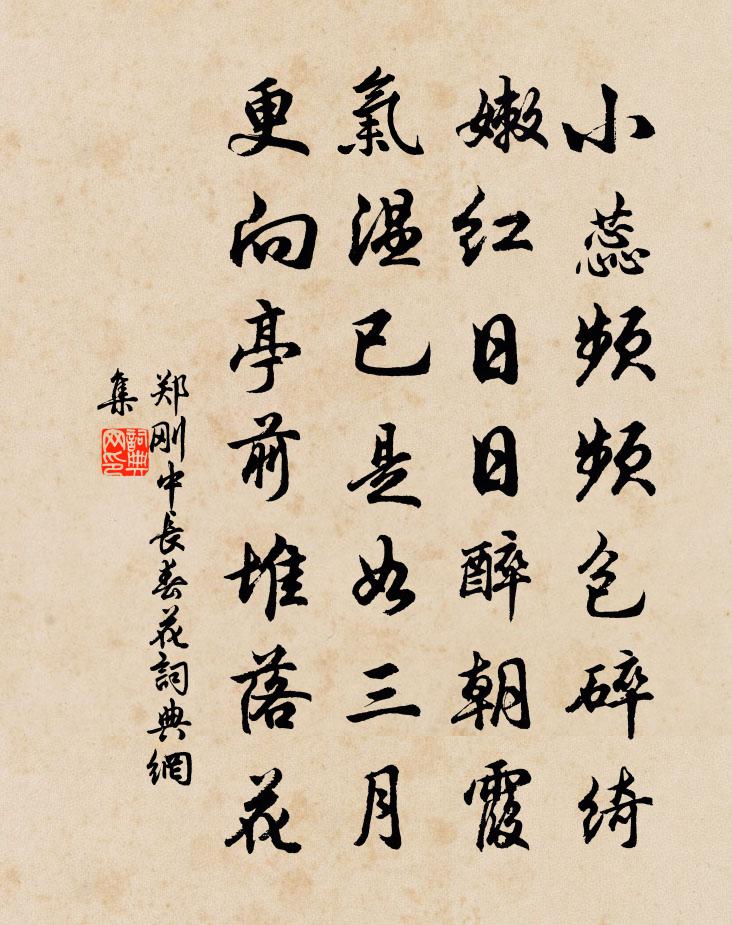 小蕊频频包碎绮
嫩红日日醉朝霞
氣温已是如三月
更向亭前堆落花
郑刚中長春花詞典網
集
詞典
网印